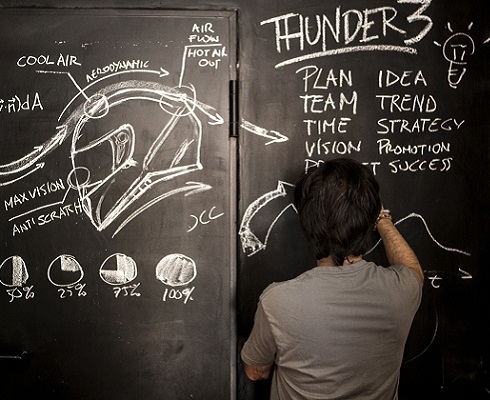 AIR
FLOW
HOT AIR
OUT
COOL AIR
AERODYNAMIC
MAX VISION
ANTI SCRATCH
50%
25%
75%
100%
THUNDER 3
PLAN IDEA
TEAM TREND
TIME STRATEGY
VISION PROMOTION
SUCCESS
t